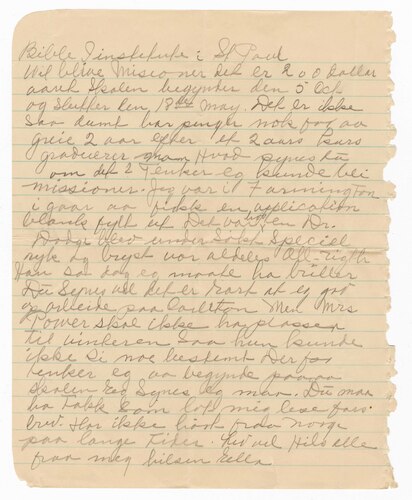 Bible Institute i St Paul
Vil blive Misioner det er 200 dollar
aaret Skolen begynder den 5 Oct
og slutter den 18de May. Det er ikke
saa dumt bar penger nok for aa
greie 2 aar efter et 2 aars kurs
graduerer man Hvad synes du
om det? Tenker eg kunde bli
missioner. Jeg var i Farmington
i gaar aa fik en application
blank fylt ut Det var en Dr.
Dodge blev undersøkt Special
ryk og bryst var aldeles All-rigth
han sa dog eg maatte ha briller
Du synes vel det er rart at eg
arbeide paa Carlton Men Mrs
Power skal ikke ha plassen
til vinteren Saa hun kunde
ikke si noe bestemt Derfor
tenker eg aa begynde paa
skolen Eg synes eg maa. Du maa
ha Takk som lot meg lese
brev. Har ikke hørt fra Norge
paa lange Tider. Lev vel Hils alle
fraa meg hilsen Ella